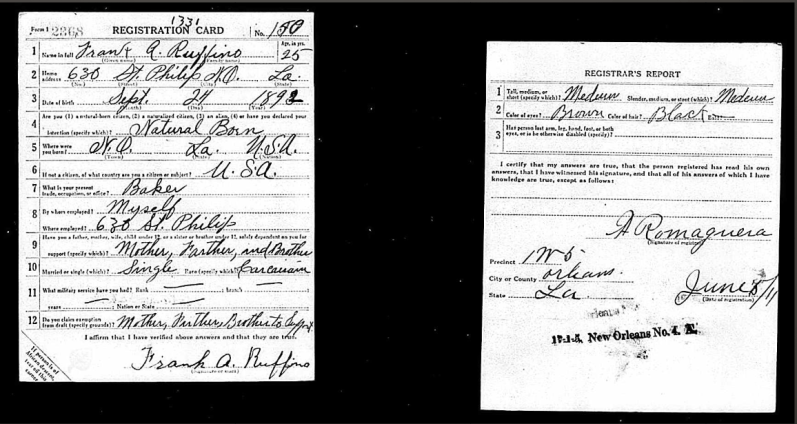 1331
Form 1 2268 REGISTRATION CARD No. 150
1 Name in full Frank A. Ruffino Age, in yrs. 25
(Given name) (Family name)
2 Home address 630 St. Philip N.O. La.
(No.) (Street) (City) (State)
3 Date of birth Sept. 1892
(Month) (Day) (Year)
4 Are you (1) a natural-born citizen, (2) a naturalized citizen, (3) an alien, (4) or have you declared your
intention (specify which)? Natural Born
5 Where were you born? N.O. La. U.S.A.
(Town) (State) (Nation)
6 If not a citizen, of what country are you a citizen or subject? U.S.A.
7 What is your present trade, occupation, or office? Baker
8 By whom employed? Myself
Where employed? 630 St. Philip
9 Have you a father, mother, wife, child under 12, or a sister or brother under 12, solely dependent on you for
support (specify which)? Mother, Farther, and Brother
10 Married or single (which)? Single Race (specify which)?
11 What military service have you had? Rank — ; branch —
years — ; Nation or State —
12 Do you claim exemption from draft (specify grounds)? Mother, Brother to
I affirm that I have verified above answers and that they are true.
Frank A. Ruffino
If person is of African descent, tear off this corner
REGISTRAR'S REPORT
1 Tall, medium, or short (specify which)? Medeum Slender, medium, or stout (which)? Medeum
2 Color of eyes? Brown Color of hair? Black
3 Has person lost arm, leg, hand, foot, or both eyes, or is he otherwise disabled (specify)?
I certify that my answers are true, that the person registered has read his own
answers, that I have witnessed his signature, and that all of his answers of which I have
knowledge are true, except as follows:
A Romaguera
(Signature of registrar)
Precinct 1 W 5
City or County Orleans.
State La June 5/17
(Date of registration)
17-1-5, New Orleans No. 4. A.